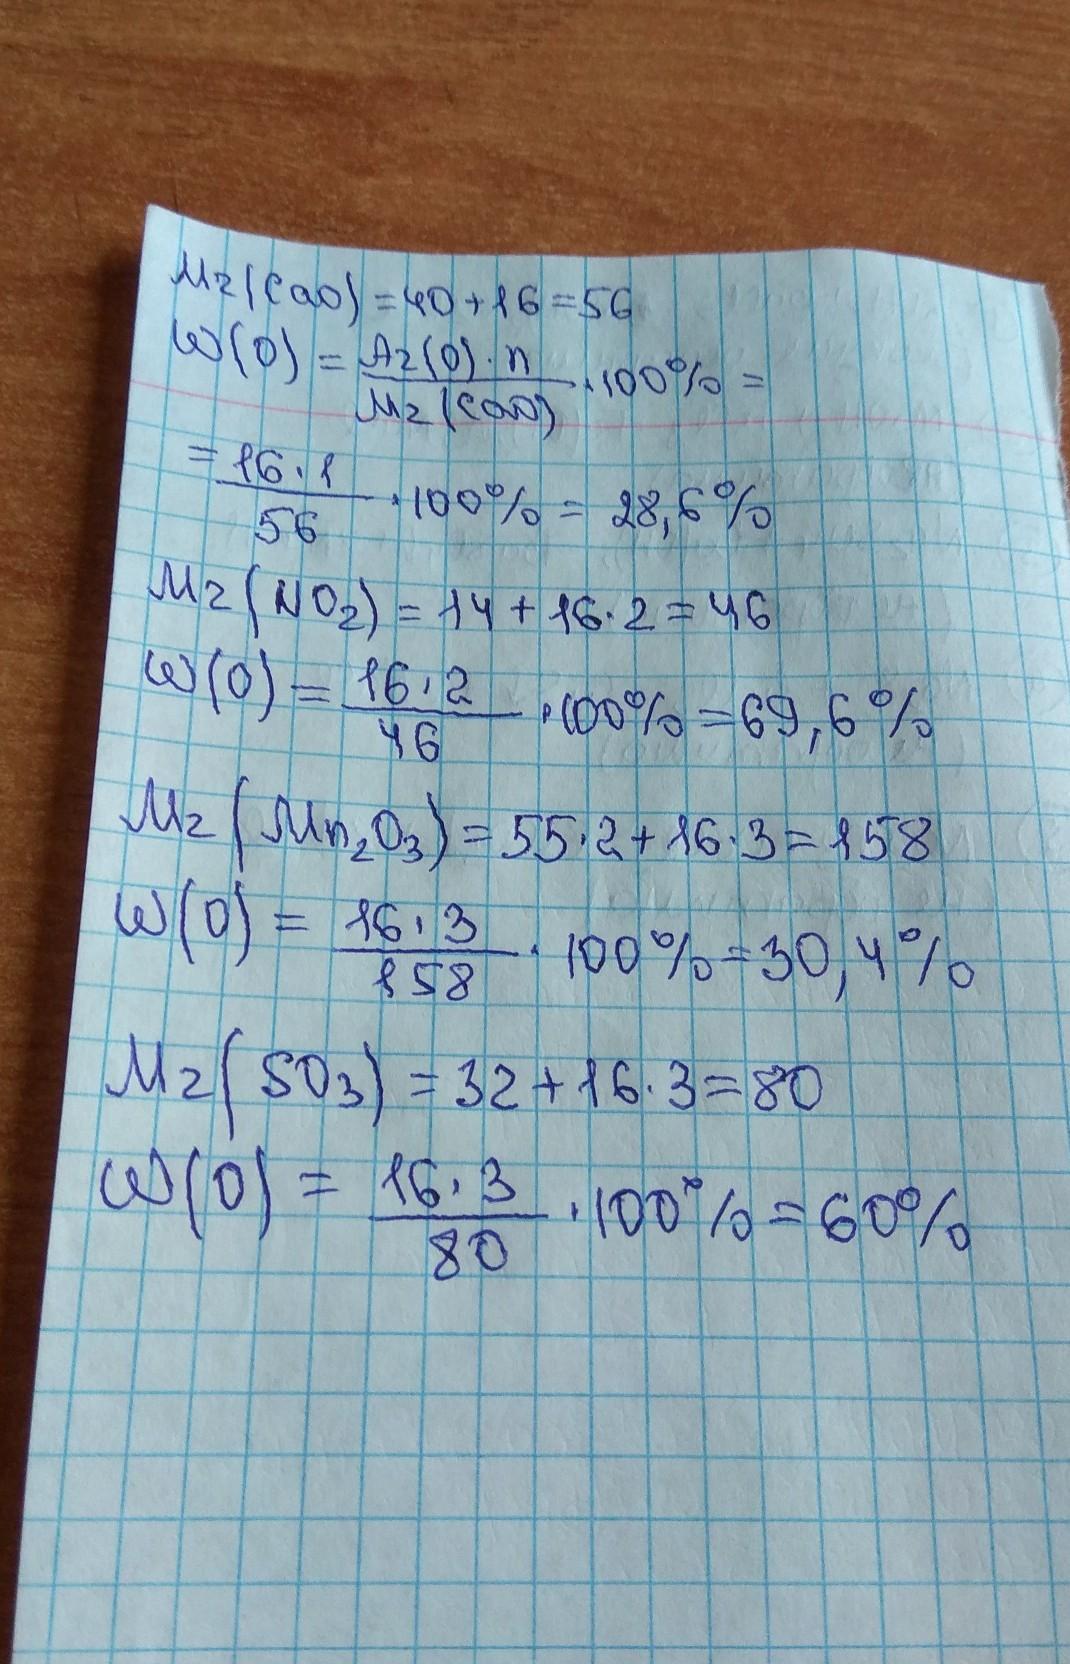 Mr(CaO) = 40 + 16 = 56
W(O) = Ar(O) · n / Mr(CaO) · 100% =
= 16 · 1 / 56 · 100% = 28,6%
Mr(NO₂) = 14 + 16 · 2 = 46
W(O) = 16 · 2 / 46 · 100% = 69,6%
Mr(Mn₂O₃) = 55 · 2 + 16 · 3 = 158
W(O) = 16 · 3 / 158 · 100% = 30,4%
Mr(SO₃) = 32 + 16 · 3 = 80
W(O) = 16 · 3 / 80 · 100% = 60%